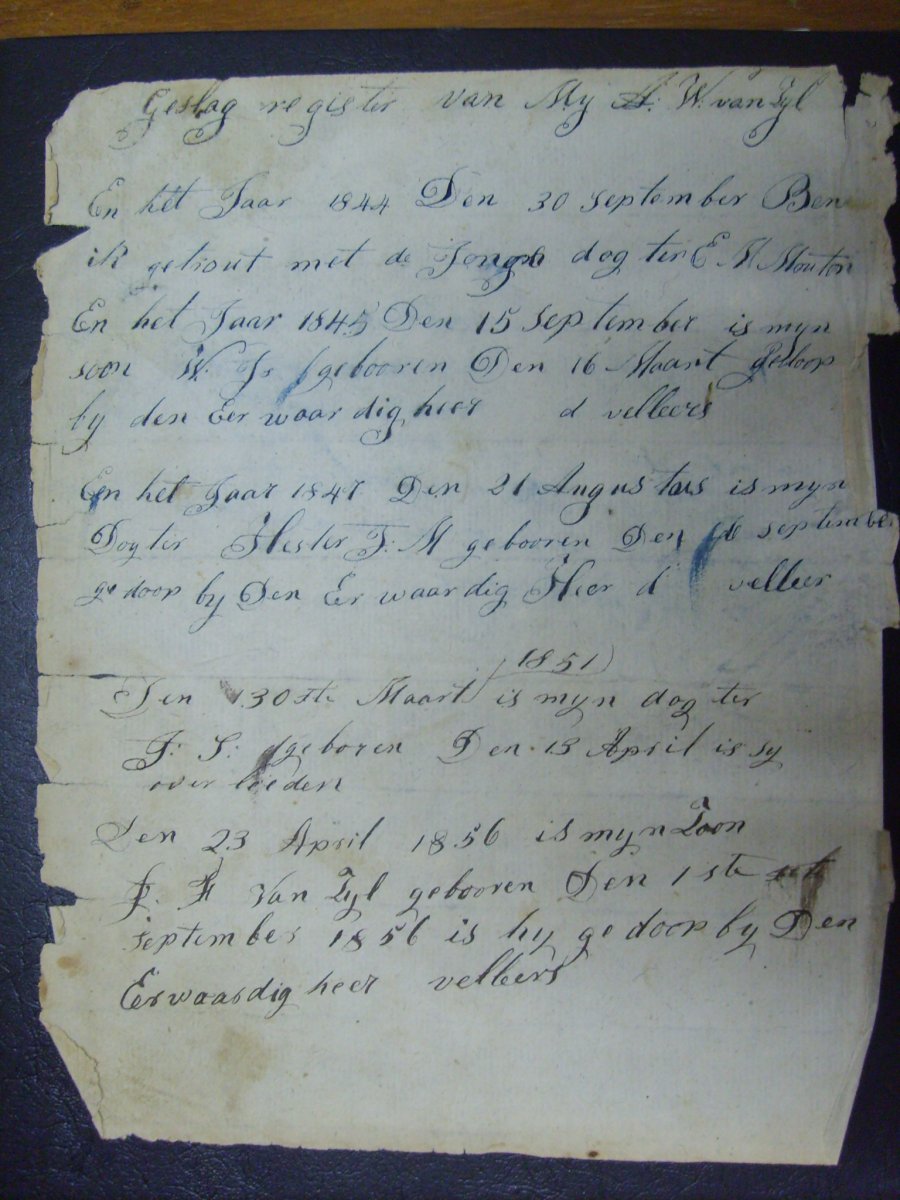 Geslag register van My A: W. van Zyl
En het Jaar 1844 Den 30 september Ben
ik getrout met de Jonge dogter E M Mouton
En het Jaar 1845 Den 15 September is myn
soon W. Js gebooren Den 16 Maart gedoop
by den Eer waardig heer d velleers
En het Jaar 1847 Den 21 Augustus is myn
Dogter Hester F. M gebooren Den september
gedoop by Den Er waardig Heer d velleer
1851
Den 30ste Maart is myn dogter
J: S: geboren Den 13 April is sy
over leeden
Den 23 April 1856 is myn Zoon
van Zyl gebooren Den 1ste
september 1856 is hy gedoop by Den
Eerwaardig heer velleers